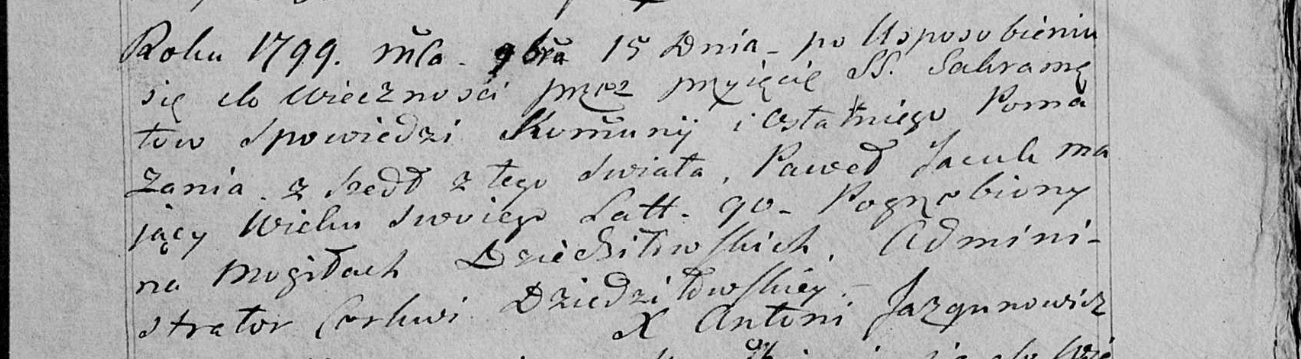 Roku 1799. mca. 9bra 15 Dnia - po Usposobieniu
się do Wieczności przez przyięcie SS. Sakramę
tow Spowiedzi Kommunij i Ostatniego Poma
zania. z szedł z tego Swiata, Paweł Jacuk ma
jący Wieku Swoiego Latt. 90 - Pogrzebiony
na Mogiłach Dziedziłowskich, Admini-
strator Cerkwi Dziedziłowskiey -
X Antoni Jazgunowicz